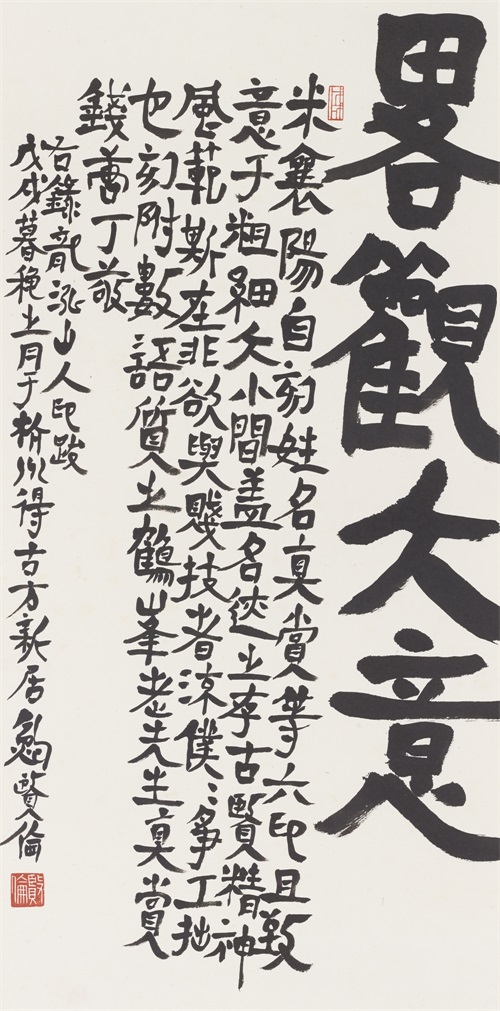 畧觀大意
米襄陽自刻姓名真賞等六印且致
意于粗細大小間盖名迹之存古賢精神
風範斯在非欲與賤技者流僕〻爭工拙
也刻附數語質之鶴峯老先生真賞
錢唐丁敬
右錄龍泓山人印跋
戊戌暮秋之月于杭州得古方新居鮑賢倫
賢倫